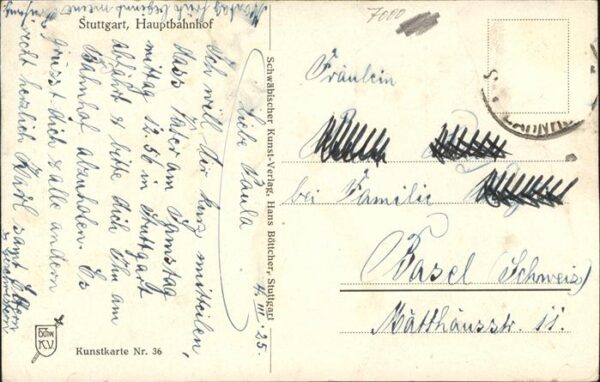 Stuttgart, Hauptbahnhof
4. III. 25.
Liebe Paula
Ich will Dir kurz mitteilen,
dass Vater am Samstag
mittag 12.56 in Stuttgart
abfährt & bitte dich Ihn am
Bahnhof abzuholen. Es
grüsst dich & alle andern
recht herzlich Karl samt Eltern
Schwäbischer Kunst-Verlag, Hans Böttcher, Stuttgart
Kunstkarte Nr. 36
K.V.
7000
Fräulein
bei Familie
Basel (Schweiz)
Mätthäusstr. 11.